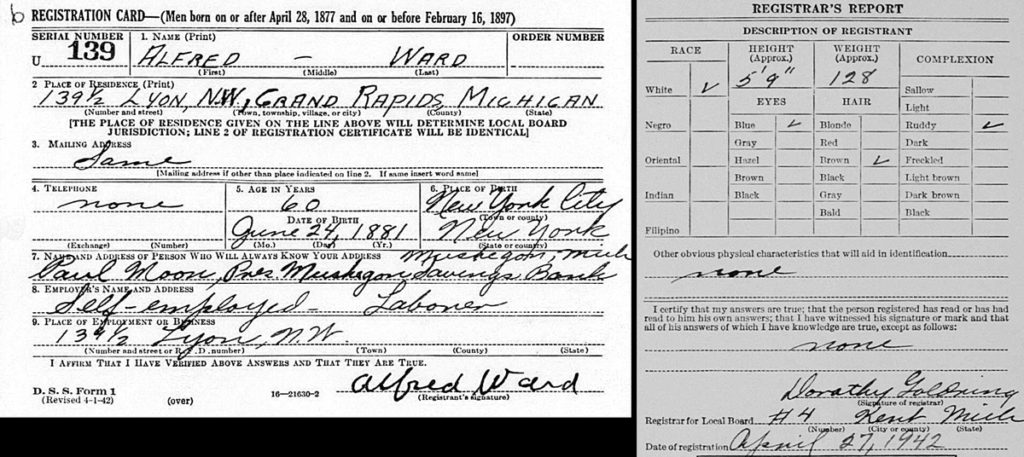 6 REGISTRATION CARD—(Men born on or after April 28, 1877 and on or before February 16, 1897)
SERIAL NUMBER 1. NAME (Print) ORDER NUMBER
U 139 ALFRED — WARD
(First) (Middle) (Last)
2 PLACE OF RESIDENCE (Print)
139½ LYON, N.W., GRAND RAPIDS, MICHIGAN
(Number and street) (Town, township, village, or city) (County) (State)
[THE PLACE OF RESIDENCE GIVEN ON THE LINE ABOVE WILL DETERMINE LOCAL BOARD
JURISDICTION; LINE 2 OF REGISTRATION CERTIFICATE WILL BE IDENTICAL]
3. MAILING ADDRESS
Same
[Mailing address if other than place indicated on line 2. If same insert word same]
4. TELEPHONE 5. AGE IN YEARS 6. PLACE OF BIRTH
none 60 New York City
DATE OF BIRTH (Town or county)
June 24, 1881 New York
(Exchange) (Number) (Mo.) (Day) (Yr.) (State or country)
7. NAME AND ADDRESS OF PERSON WHO WILL ALWAYS KNOW YOUR ADDRESS Muskegon, Mich
Paul Moon, Pres Muskegon Savings Bank
8. EMPLOYER'S NAME AND ADDRESS
Self-employed - Laborer
9. PLACE OF EMPLOYMENT OR BUSINESS
139½ Lyon, N.W.
(Number and street or R. F. D. number) (Town) (County) (State)
I AFFIRM THAT I HAVE VERIFIED ABOVE ANSWERS AND THAT THEY ARE TRUE.
Alfred Ward
D. S. S. Form 1 (Registrant's signature)
(Revised 4-1-42) (over) 16—21630-2
REGISTRAR'S REPORT
DESCRIPTION OF REGISTRANT
RACE HEIGHT (Approx.) WEIGHT (Approx.) COMPLEXION
White ✓ 5'9" 128 Sallow
EYES HAIR Light
Negro Blue ✓ Blonde Ruddy ✓
Gray Red Dark
Oriental Hazel Brown ✓ Freckled
Brown Black Light brown
Indian Black Gray Dark brown
Bald Black
Filipino
Other obvious physical characteristics that will aid in identification
none
I certify that my answers are true; that the person registered has read or has had
read to him his own answers; that I have witnessed his signature or mark and that
all of his answers of which I have knowledge are true, except as follows:
none
Dorothy Goldring
(Signature of registrar)
Registrar for Local Board #4 Kent Mich
(Number) (City or county) (State)
Date of registration April 27, 1942